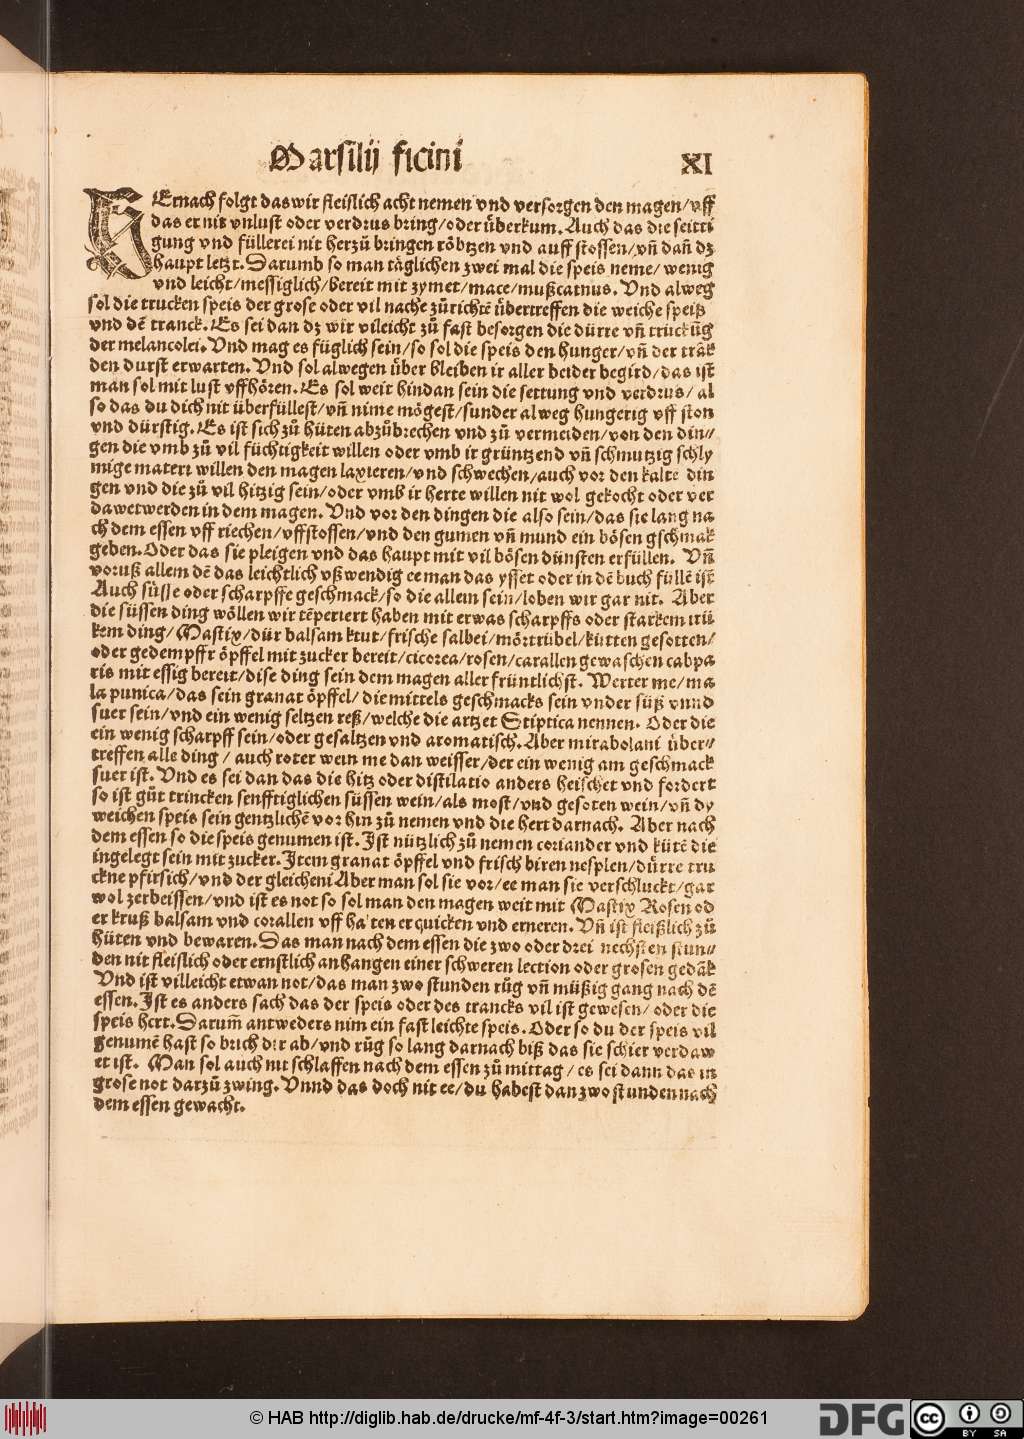 Marsilij ficini
XI
HErnach folgt das wir fleislich acht nemen vnd versorgen den magen/vff
das er nit vnlust oder verdrus bring/oder überkum. Auch das die seitti
gung vnd füllerei nit herzů bringen röbtzen vnd auff stossen/vñ dañ dz
haupt letzt. Darumb so man täglichen zwei mal die speis neme/ wenig
vnd leicht/messiglich/bereit mit zymet/mace/mußcatnus. Vnd alweg
sol die trucken speis der grose oder vil nache zůrichtē übertreffen die weiche speiß
vnd dē tranck. Es sei dan dz wir vileicht zů fast besorgen die dürre vñ truckūg
der melancolei. Vnd mag es füglich sein/so sol die speis den hunger/vñ der trāk
den durst erwarten. Vnd sol alwegen über bleiben ir aller beider begird/das ist
man sol mit lust vffhören. Es sol weit hindan sein die settung vnd verdrus/ al
so das du dich nit überfüllest/vñ nime mögest/sunder alweg hungerig vff ston
vnd dürstig. Es ist sich zů hüten abzůbrechen vnd zů vermeiden/von den din⸗
gen die vmb zů vil füchtigkeit willen oder vmb ir grüntzend vñ schmutzig schly
mige materi willen den magen laxieren/vnd schwechen/auch vor den kaltē din
gen vnd die zů vil hitzig sein/oder vmb ir herte willen nit wol gekocht oder ver
dawet werden in dem magen. Vnd vor den dingen die also sein/das sie lang na
ch dem essen vff riechen/vffstossen/vnd den gumen vñ mund ein bösen gschmak
geben. Oder das sie pleigen vnd das haupt mit vil bösen dünsten erfüllen. Vñ
voruß allem dē das leichtlich vßwendig ee man das ysset oder in dē buch füllē ist
Auch süsse oder scharpffe geschmack/so die allein sein/loben wir gar nit. Aber
die süssen ding wöllen wir tēperiert haben mit etwas scharpffs oder starkem trü
kem ding/ Mastix/dür balsam krut/frische salbei/mörtrübel/kütten gesotten/
oder gedempffr öpffel mit zucker bereit/cicorea/rosen/carallen gewaschen cabpa
ris mit essig bereit/dise ding sein dem magen aller früntlichst. Werter me/ma
la punica/das sein granat öpffel/die mittels geschmacks sein vnder süß vnnd
suer sein/vnd ein wenig seltzen reß/welche die artzet Stiptica nennen. Oder die
ein wenig scharpff sein/oder gesaltzen vnd aromatisch. Aber mirabolani über⸗
treffen alle ding / auch roter wein me dan weisser/der ein wenig am geschmack
suer ist. Vnd es sei dan das die hitz oder distilatio anders heischet vnd fordert
so ist gůt trincken senfftiglichen süssen wein/als most/vnd gesoten wein/vñ dy
weichen speis sein gentzlichē vor hin zů nemen vnd die hert darnach. Aber nach
dem essen so die speis genumen ist. Ist nützlich zů nemen coriander vnd kütē die
ingelegt sein mit zucker. Item granat öpffel vnd frisch biren nesplen/dürre tru
ckne pfirsich/vnd der gleichen Aber man sol sie vor/ee man sie verschluckt/gar
wol zerbeissen/vnd ist es not so sol man den magen weit mit Mastix Rosen od
er kruß balsam vnd corallen vff halten erquicken vnd erneren. Vñ ist fleißlich zů
hüten vnd bewaren. Das man nach dem essen die zwo oder drei nechsten stun⸗
den nit fleislich oder ernstlich anhangen einer schweren lection oder grosen gedāk
Vnd ist villeicht etwan not/das man zwo stunden růg vñ müßig gang nach dē
essen. Ist es anders sach das der speis oder des trancks vil ist gewesen/ oder die
speis hert. Darum̄ antweders nim ein fast leichte speis. Oder so du der speis vil
genumē hast so brich dir ab/vnd růg so lang darnach biß das sie schier verdaw
et ist. Man sol auch nit schlaffen nach dem essen zů mittag/ es sei dann das in
grose not darzů zwing. Vnnd das doch nit ee/du habest dan zwo stunden nach
dem essen gewacht.
© HAB http://diglib.hab.de/drucke/mf-4f-3/start.htm?image=00261
DFG
cc
BY SA